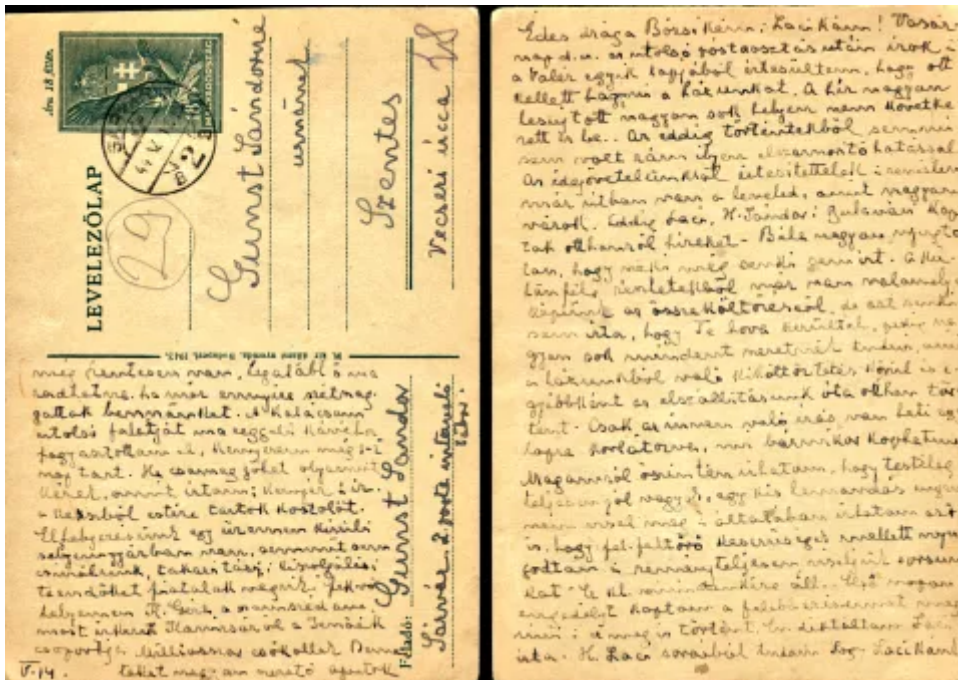 LEVELEZŐLAP
Ára 18 fillér.
MAGYARORSZÁG
SÁRVÁR
2
29
Gunst Sándorné
úrnőnek
Szentes
Vecseri ucca 28
M. kir. állami nyomda, Budapest, 1943.
Feladó: Gunst Sándor
Sárvár 2 posta internáló
tábor
még rendesen van, legalább ő ma
radhatna, ha már ennyire szétmag
gattak bennünket. A kalácsom
utolsó falatját ma reggeli kávéhoz
fogyasztottam el, kenyerem még 1-2
nap tart. Ha csomag jöhet olyanit
kérek, amint írtam; kenyér, zsír,
a kekszből estére tartok kóstolót.
Elhelyezésünk egy üzemen kívüli
selyemgyárban van, semmit sem
csinálunk, takarítási, kiszolgálási
teendőket fiatalok végzik.
helyemen K. Geré, a
most érkezett Kanizsáról a
csoportja Milliószor csókollak
V-14. titeket nagyon szerető apátok
Édes drága Bözsikém, Lacikám! Vasár
nap d.u. az utolsó postaosztás után írok
a Valér egyik lapjából értesültem, hogy ott
kellett hagyni a házunkat. A hír nagyon
lesújtott nagyon sok helyen nem követke
zett is be. Az eddig történtekből semmi
sem volt rám ilyen elszomorító hatással
Az idejövetelünkről értesítettelek remélem
már útban van a leveled, amit nagyon
várok. Eddig Laci, H. Sándor, Gulavári kap
tak otthonról híreket - Béla nagyon nyugta
lan, hogy neki még senki sem írt. A kü-
lönféle részletekből már van valamelyes
képünk az összeköltözésről, de azt senki
sem írta, hogy Te hová kerültél, pedig na
gyon sok mindent szeretnék tudni, ami
a házunkból való kiköltöztetés körül is e
gyébként az elszállításunk óta otthon tör
tént. Csak az innen való írás van heti egy
lapra korlátozva, mi bármikor kaphatunk
Magamról őszintén írhatom, hogy testileg
teljesen jól vagyok, egy kis lemondás engem
nem visel meg általában írhatom azt
is, hogy fel-feltörő keserűségek mellett nyu
godtan reményteljesen viseljük sorsun
kat
engedélyt kaptam a
meg is történt. Én diktáltam Laci
írta. H. Laci soraiból tudom hogy Lacikám